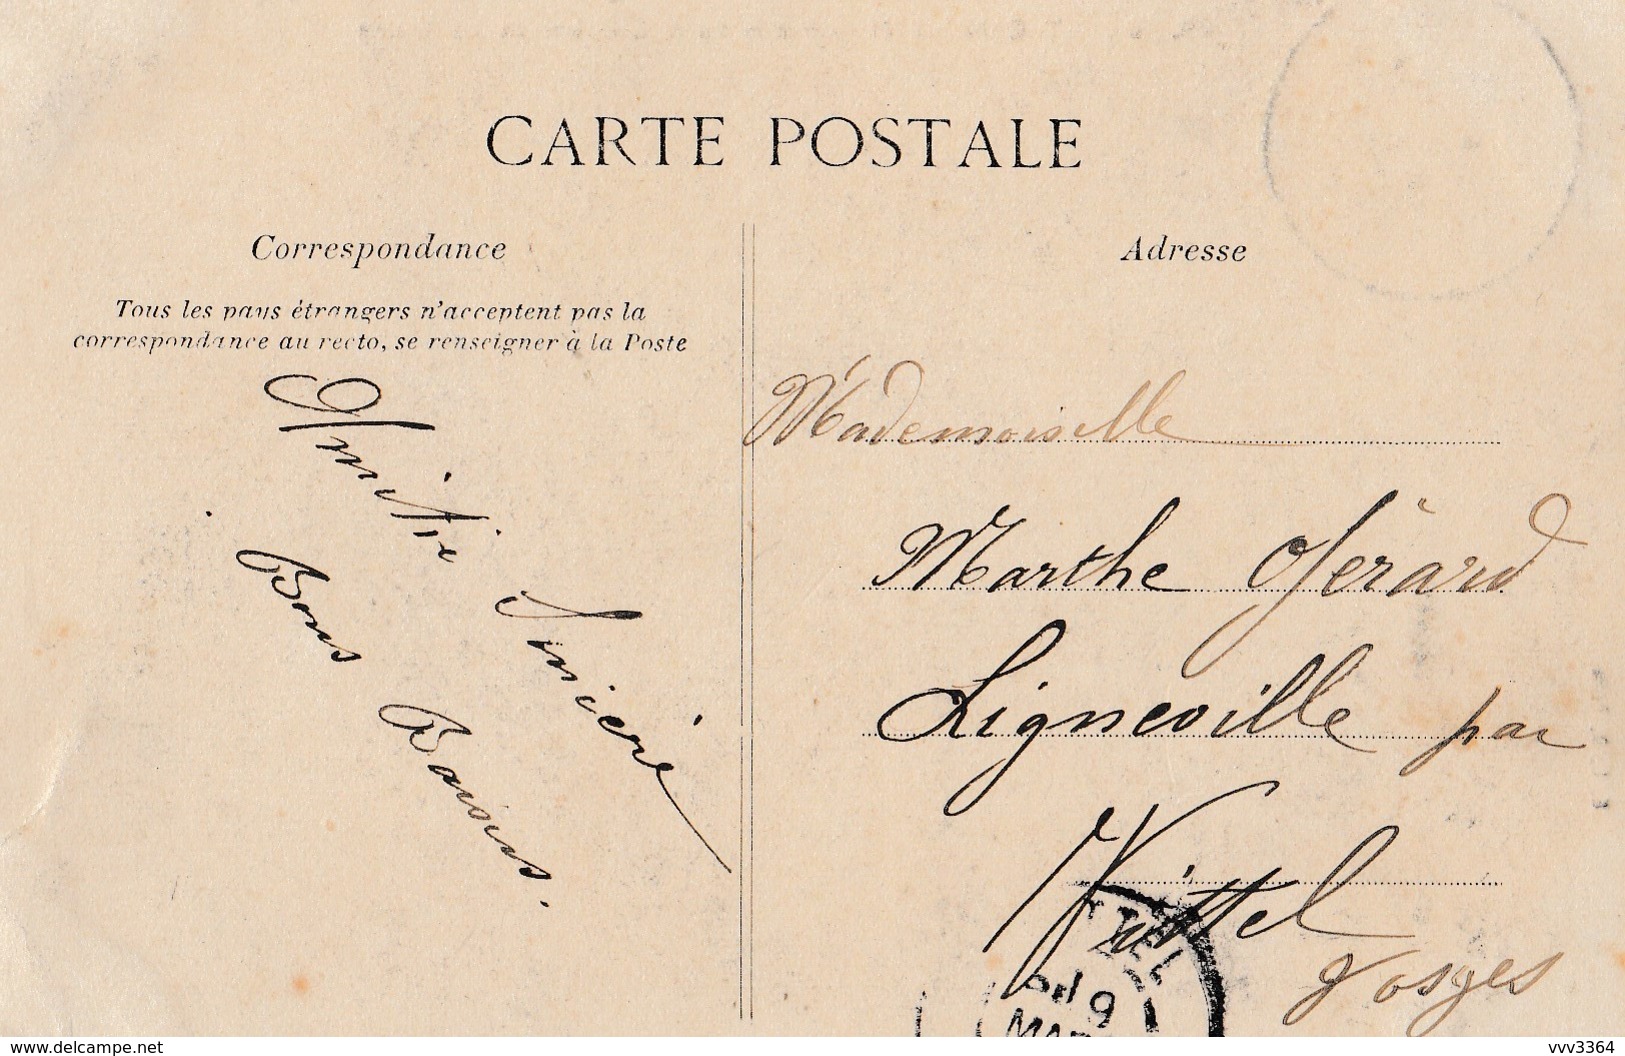 CARTE POSTALE
Correspondance
Tous les pays étrangers n'acceptent pas la
correspondance au recto, se renseigner à la Poste
Amitié Sincère
Bons Baisers.
Adresse
Mademoiselle
Marthe Gérard
Ligneville par
Vittel
Vosges
TEL
9
MAR
www.delcampe.net
vvv3364